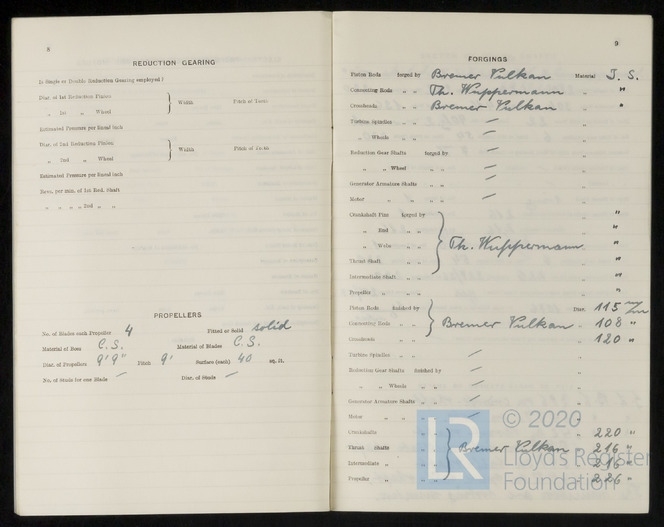 8
REDUCTION GEARING
Is Single or Double Reduction Gearing employed?
Diar. of 1st Reduction Pinion } Width Pitch of Teeth
„ 1st „ Wheel
Estimated Pressure per lineal inch
Diar. of 2nd Reduction Pinion } Width Pitch of Teeth
„ 2nd „ Wheel
Estimated Pressure per lineal inch
Revs. per min. of 1st Red. Shaft
„ „ „ „ 2nd „ „
PROPELLERS
No. of Blades each Propeller 4 Fitted or Solid solid
Material of Boss C.S. Material of Blades C.S.
Diar. of Propellers 9' 9" Pitch 9' Surface (each) 40 sq. ft.
No. of Studs for one Blade — Diar. of Studs —
9
FORGINGS
Piston Rods forged by Bremer Vulkan Material J. S.
Connecting Rods „ „ Th. Wuppermann „ "
Crossheads „ „ Bremer Vulkan „ "
Turbine Spindles „ „ — „
„ Wheels „ „ — „
Reduction Gear Shafts forged by — „
„ „ Wheel „ „ — „
Generator Armature Shafts „ „ — „
Motor „ „ „ — „
Crankshaft Pins forged by } Th. Wuppermann „ "
„ Rod „ „ „ "
„ Webs „ „ „ "
Thrust Shaft „ „ „ "
Intermediate Shaft „ „ „ "
Propeller „ „ „ "
Piston Rods finished by } Bremer Vulkan Diar. 115
Connecting Rods „ „ „ 108 "
Crossheads „ „ „ 120 "
Turbine Spindles „ „ — „
Reduction Gear Shafts finished by — „
„ „ Wheels „ „ — „
Generator Armature Shafts „ „ — „
Motor „ „ „ — „
Crankshafts „ „ } Bremer Vulkan „ 220 "
Thrust Shafts „ „ „ 216 "
Intermediate „ „ „ „ 216 "
Propeller „ „ „ „ 226 "
LR © 2020
Lloyd's Register
Foundation